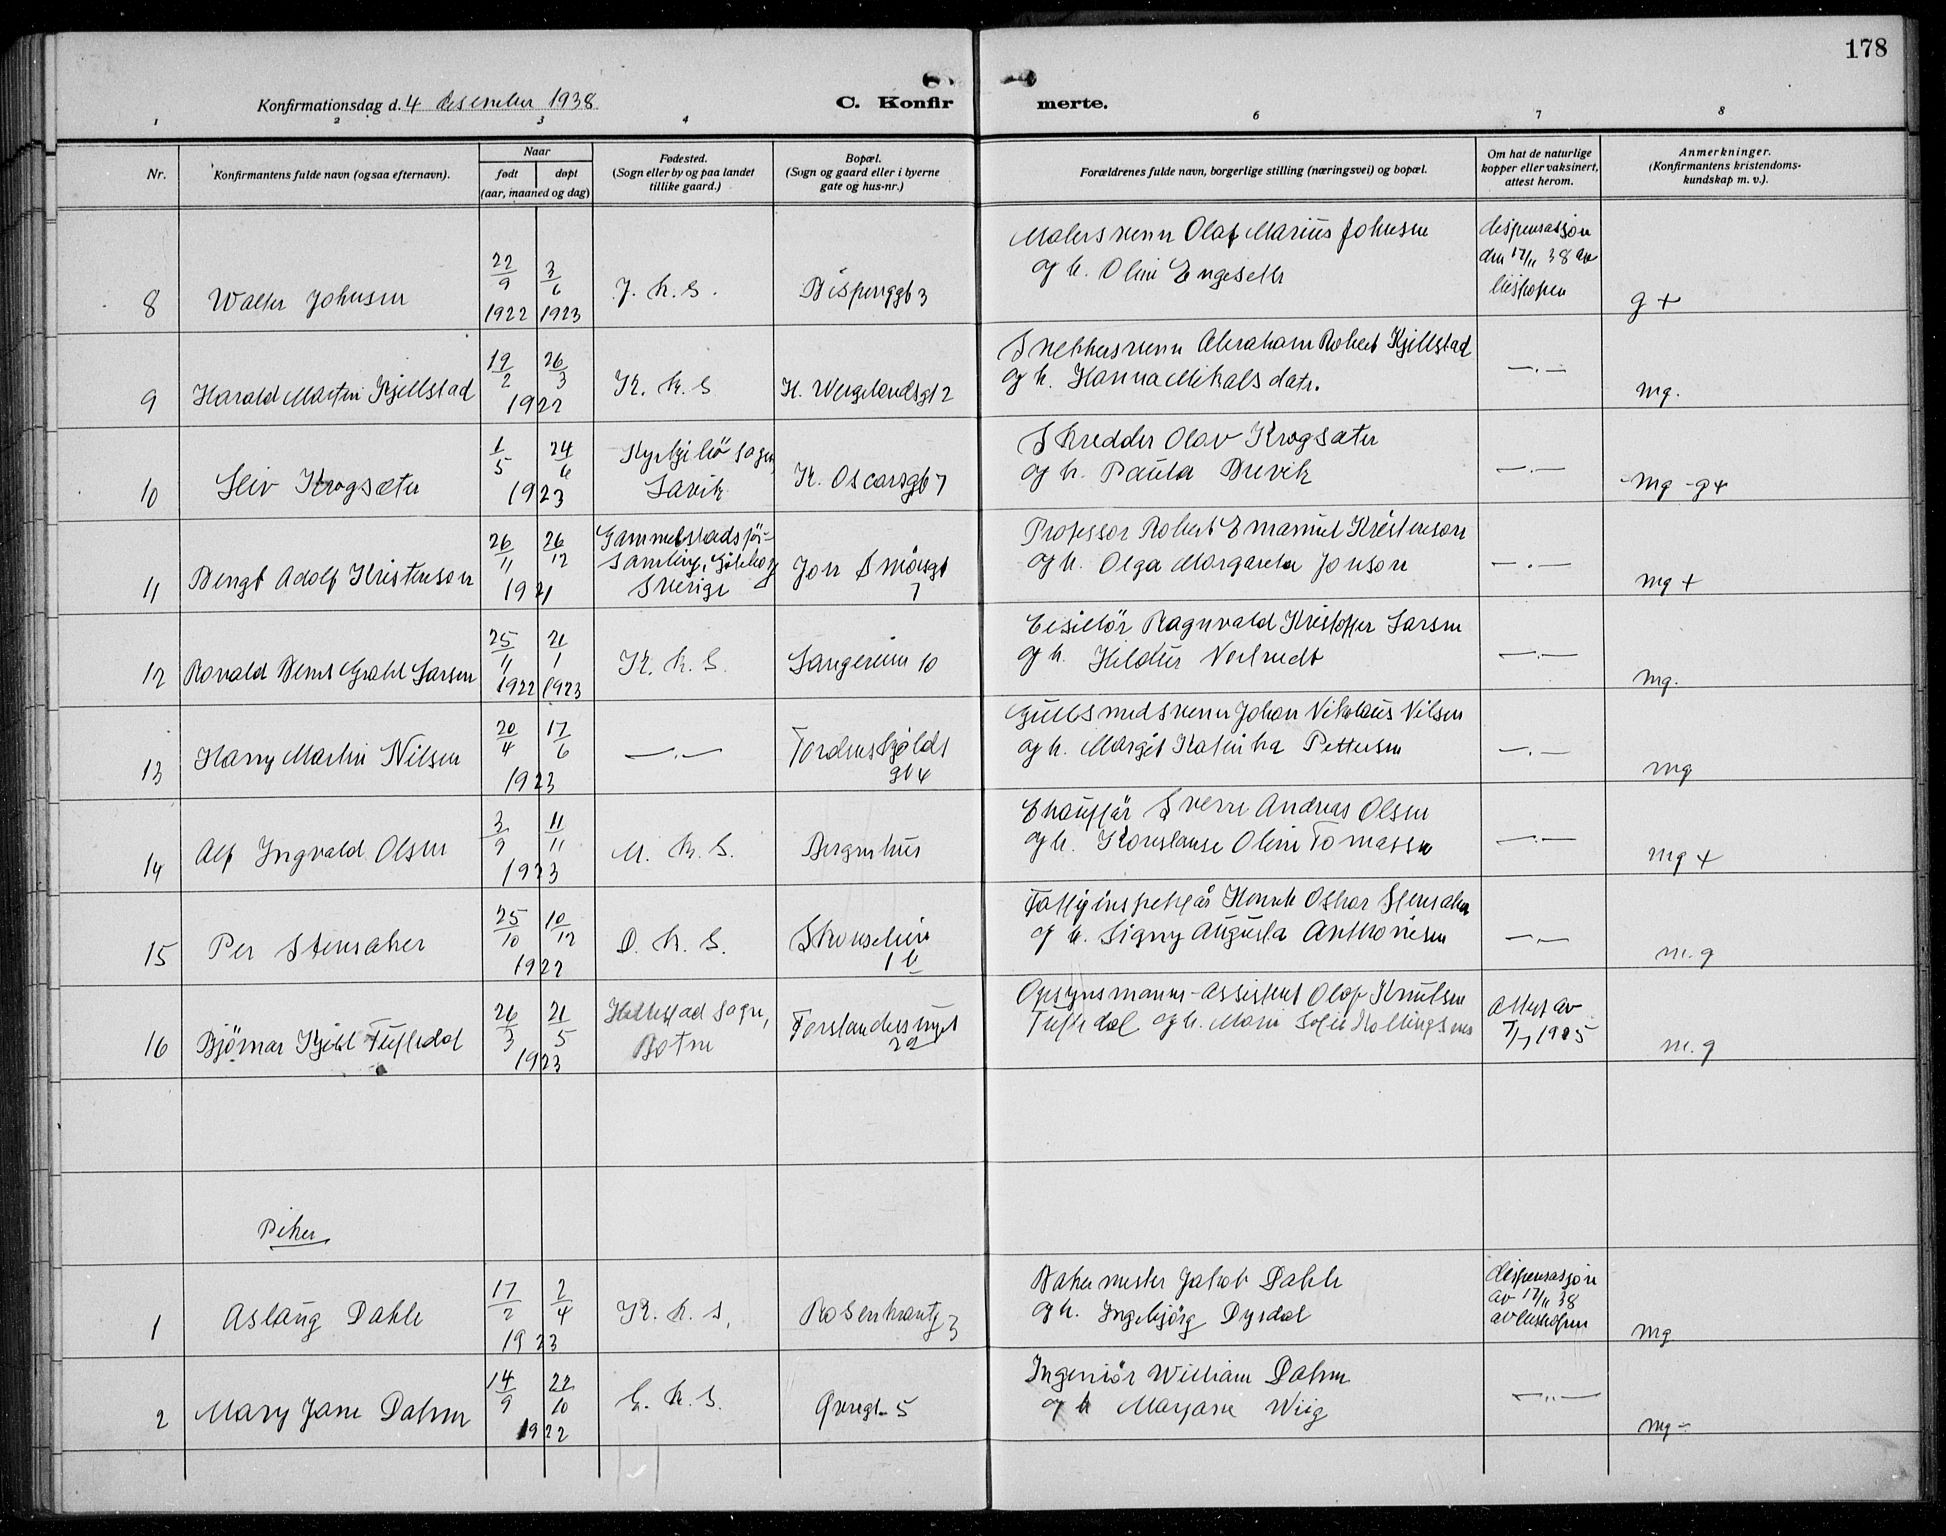 178
Konfirmationsdag d. 4 desember 1938
C. Konfirmerte.
1 2 3 4 6 7 8
Nr.
Konfirmantens fulde navn (ogsaa efternavn).
Naar
født døpt
(aar, maaned og dag)
Fødested.
(Sogn eller by og paa landet
tillike gaard.)
Bopæl.
(Sogn og gaard eller i byerne
gate og hus-nr.)
Forældrenes fulde navn, borgerlige stilling (næringsvei) og bopæl.
Om hat de naturlige
kopper eller vaksinert,
attest herom.
Anmerkninger.
(Konfirmantens kristendoms-
kundskap m. v.).
8 Walter Johnsen 22/9 1922 3/6 1923 J. k. S. Bispenggt 3
Malersvenn Olaf Marius Johnsen
og h. Oline Engeseth
dispensasjon
den 17/11 38 av
biskopen
g +
9 Harald Martin Kjellstad 19/2 26/3 1922 K. k. S H. Wergelandsgt 2
Snekkersvenn Abraham Robert Kjellstad
og h. Hanna Mikalsdatr.
—.— mg.
10 Leiv Krogsæter 1/5 24/6 1923
Kyrkjebö sogn,
Lavik
K. Oscarsgt 7
Skredder Olav Krogsæter
og h. Paula Brevik
—.— mg -g+
11 Bengt Adolf Kristenson 26/11 26/12 1921
Gammelstadsför-
samling, Göteborg
Sverige
Jon Smørsgt
7
Professor Robert Emanuel Kristenson
og h. Olga Margareta Jonson
—.— mg +
12 Ronald Bernt Grahl Larsen 25/11 1922 21/1 1923 K. k. S. Langereien 10
Ragnvald Kristoffer Larsen
og h. Hildur
—.— mg.
13 Harry Martin Nilsen 20/4 17/6 1923 —.—
Tordenskjolds
gt 4
Gullsmedsvenn Johan Nikolaus Nilsen
og h. Margit Katinka Pettersen
—.— mg
14 Alf Ingvald Olsen 3/9 11/11 1923 M. k. S. Bergenhus
Chauffør Sverre Andreas Olsen
og h. Konstanse Oline Tomassen
—.— mg +
15 Per Stensaker 25/10 10/12 1922 D. k. S.
1 b
Henrik Oskar Stensaker
og h. Signy Augusta Anthonisen
—.— m. g
16 Bjørnar Kjell Tuftedal 26/3 21/5 1923
sogn,
Botne
22
Opsynsmann-Assistent Olaf Knutsen
Tuftedal og h. Marie Sofie
Attest av
m. g
Piker
1 Aslaug Dahle 17/2 2/4 1923 K. k. S. Rosenkrantz 3
Bakermester Jakob Dahle
og h. Ingebjørg Dysdal
dispensasjon
av 17/11 38
av biskopen
mg
2 Mary Jane Dahm 14/9 22/10 1922 k. S. Øvregt. 5
Ingeniør William Dahm
og h Marjane Wiig
—„— mg -